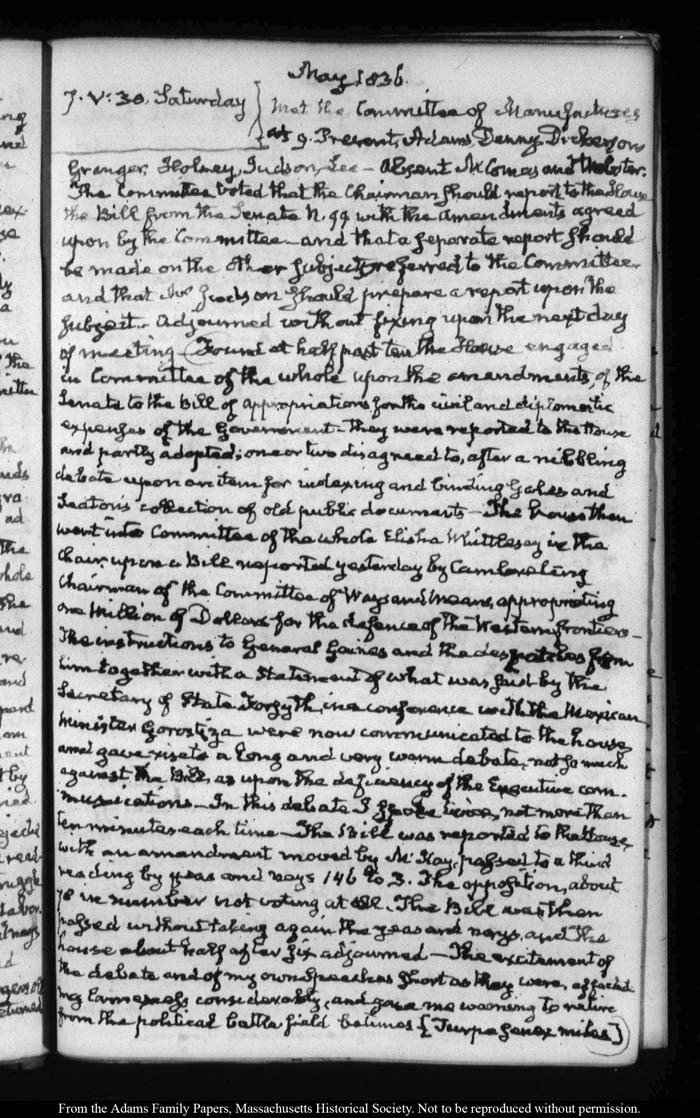 May 1836.
7. V:30. Saturday } Met the Committee of Manufactures
at 9. Present, Adams, Denny, Dickerson
Granger, Holsey, Judson, Lee — Absent McComas and Webster.
The Committee voted that the Chairman should report to the House
the Bill from the Senate N. 99 with the amendments agreed
upon by the Committee — and that a separate report should
be made on the other subjects referred to the Committee
and that Mr Judson should prepare a report upon the
subject. Adjourned without fixing upon the next day
of meeting — Found at half past ten the House engaged
in Committee of the whole upon the amendments, of the
Senate to the Bill of appropriations for the civil and diplomatic
expenses of the Government — They were reported to the House
and partly adopted; one or two disagreed to, after a nibbling
debate upon an item for indexing and binding Gales and
Seaton's collection of old public documents — The house then
went into Committee of the whole Elisha Whittlesey in the
Chair, upon a Bill reported yesterday by Cambreleng
Chairman of the Committee of Ways and Means, appropriating
one Million of Dollars for the defence of the Western frontiers —
The instructions to General Gaines and the despatches from
him together with a Statement of what was said by the
Secretary of State Forsyth, in a conference with the Mexican
Minister Gorostiza were now communicated to the house,
and gave rise to a long and very warm debate, not so much
against the Bill, as upon the deficiency of the Executive com-
munications — In this debate I spoke twice, not more than
ten minutes each time — The Bill was reported to the House,
with an amendment moved by McKay, passed to a third
reading by yeas and nays 146 to 3. The opposition, about
78 in number not voting at all. The Bill was then
passed without taking again the yeas and nays, and the
house about half after six adjourned — The excitement of
the debate and of my own Speeches short as they were, affected
my considerably, and gave me warning to retire
from the political battle field betimes [Turpe senex miles]
From the Adams Family Papers, Massachusetts Historical Society. Not to be reproduced without permission.